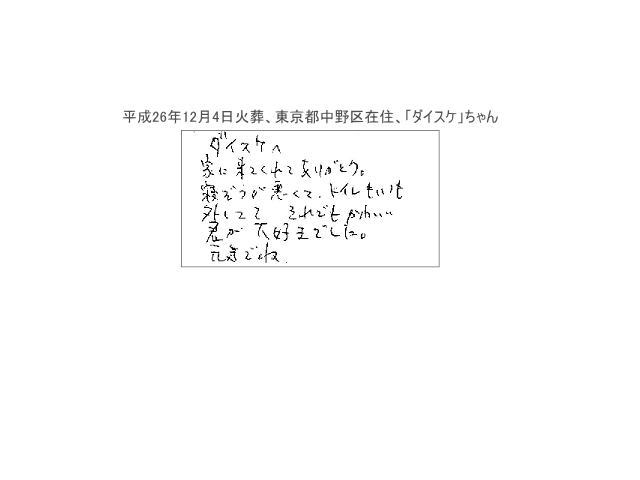 平成26年12月4日火葬、東京都中野区在住、「ダイスケ」ちゃん
ダイスケへ
家に来てくれてありがとう。
寝ぞうが悪くて、トイレもいつも
外してて それでもかわいい
君が大好きでした。
元気でね